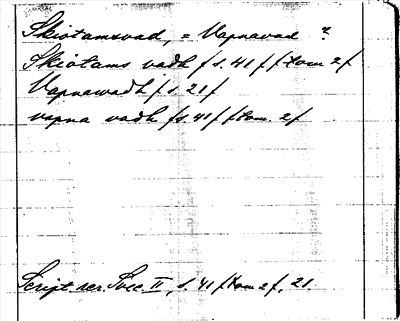 Skiotamsvad, = Vapnavad ?
Skiotams vadh / s. 41 / / tom 2 /
Vapnawadh / s. 21 /
vapna vadh / s. 41 / / tom. 2 /
Script. rer. Svec. II, s. 41 / tom 2 /, 21.